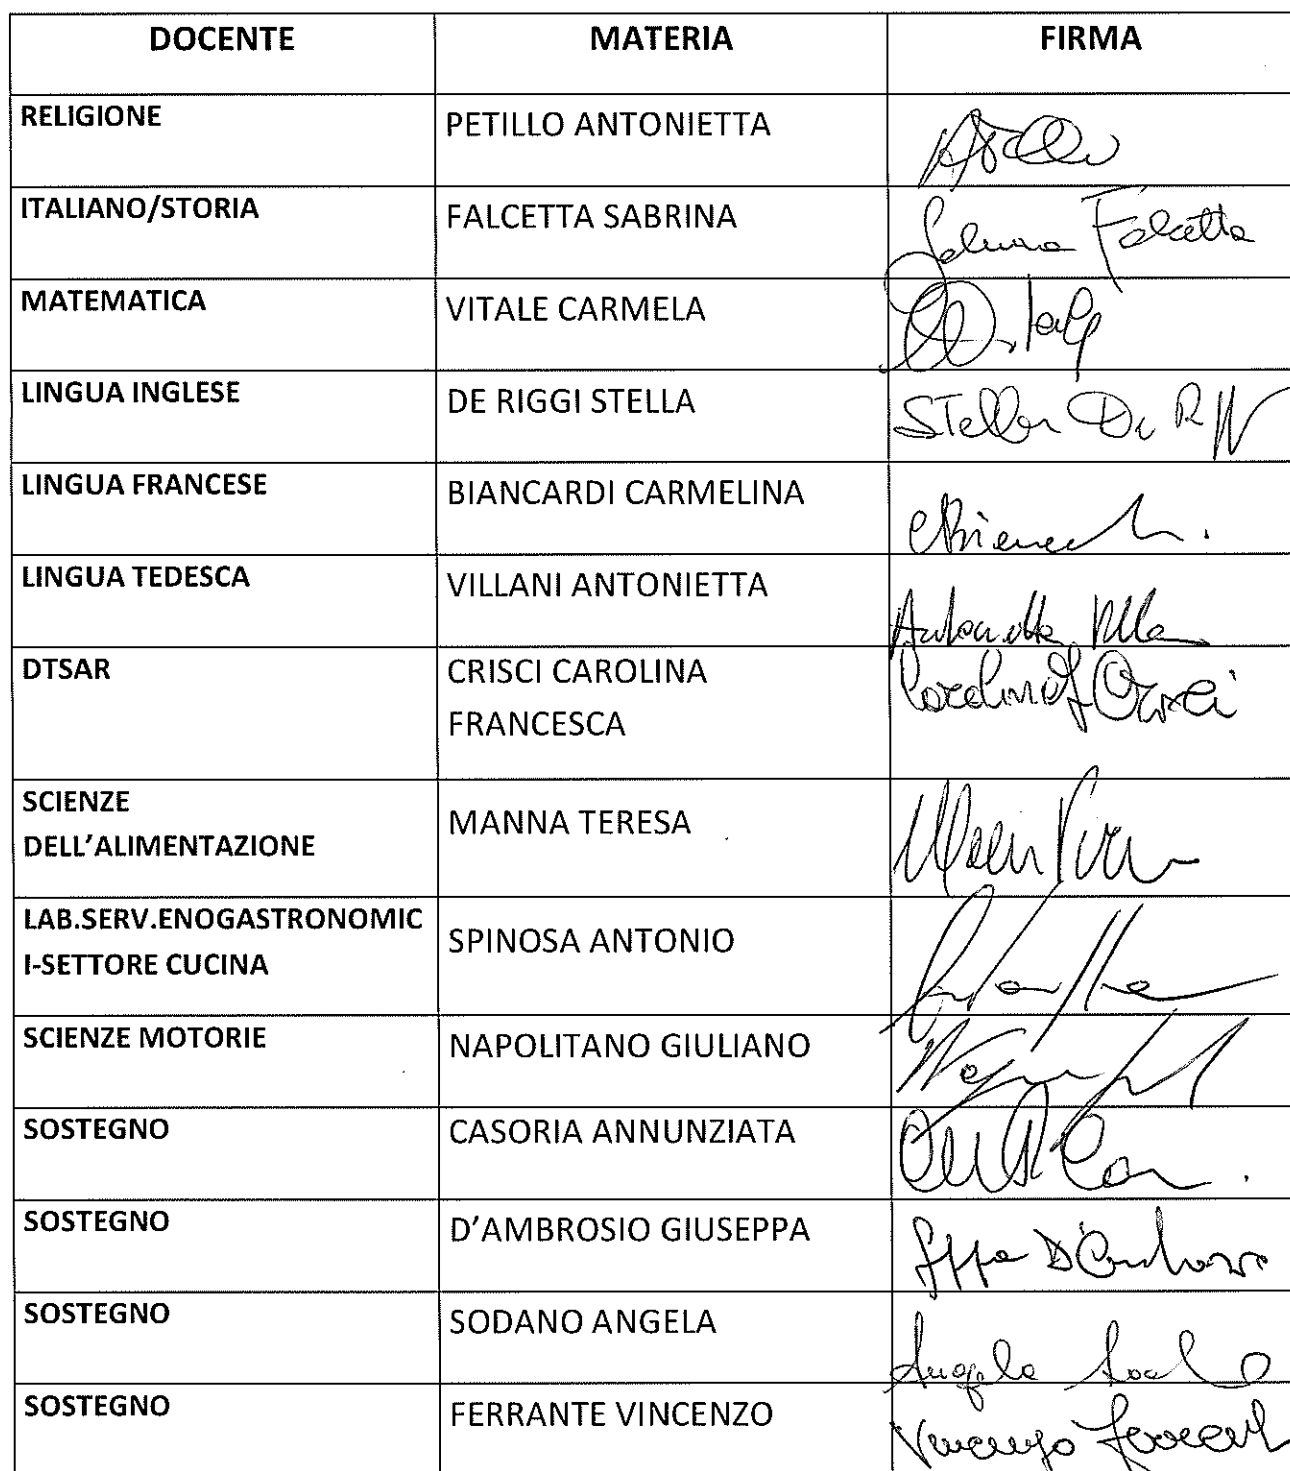 DOCENTE MATERIA FIRMA
RELIGIONE PETILLO ANTONIETTA
ITALIANO/STORIA FALCETTA SABRINA Sabrina Falcetta
MATEMATICA VITALE CARMELA
LINGUA INGLESE DE RIGGI STELLA Stella De
LINGUA FRANCESE BIANCARDI CARMELINA
LINGUA TEDESCA VILLANI ANTONIETTA Antonietta
DTSAR CRISCI CAROLINA Carolina F Crisci
FRANCESCA
SCIENZE
DELL'ALIMENTAZIONE MANNA TERESA
LAB.SERV.ENOGASTRONOMIC
I-SETTORE CUCINA SPINOSA ANTONIO
SCIENZE MOTORIE NAPOLITANO GIULIANO
SOSTEGNO CASORIA ANNUNZIATA
SOSTEGNO D'AMBROSIO GIUSEPPA D'Ambrosio
SOSTEGNO SODANO ANGELA Angela
SOSTEGNO FERRANTE VINCENZO Vincenzo